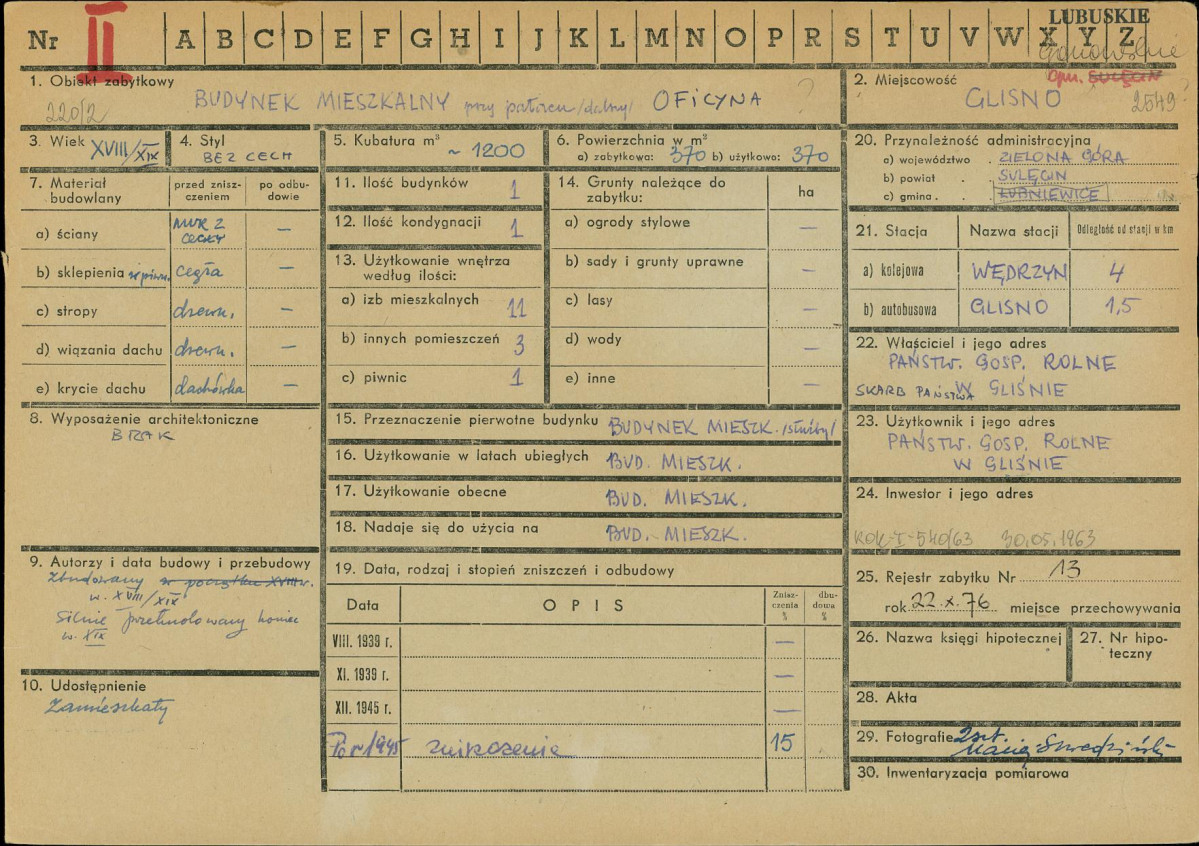 LUBUSKIE
Nr II A B C D E F G H I J K L M N O P R S T U V W X Y Z
1. Obiekt zabytkowy
220/2
BUDYNEK MIESZKALNY przy pałacu /dalszy/ OFICYNA ?
2. Miejscowość
Opu. SULĘCIN
GLISNO
2549 ?
3. Wiek XVIII/XIX
4. Styl
BEZ CECH
5. Kubatura m³
~ 1200
6. Powierzchnia w m²
a) zabytkowa: 370 b) użytkowo: 370
7. Materiał budowlany
przed zniszczeniem
po odbudowie
a) ściany
MUR Z
CEGŁY
—
b) sklepienia w piwn.
cegła
—
c) stropy
drewn.
—
d) wiązania dachu
drewn.
—
e) krycie dachu
dachówka
—
8. Wyposażenie architektoniczne
BRAK
9. Autorzy i data budowy i przebudowy
Zbudowany w początku XVIII w.
w. XVIII/XIX
silnie przebudowany koniec
w. XIX
10. Udostępnienie
Zamieszkały
11. Ilość budynków
1
12. Ilość kondygnacji
1
13. Użytkowanie wnętrza
według ilości:
a) izb mieszkalnych
11
b) innych pomieszczeń
3
c) piwnic
1
14. Grunty należące do
zabytku:
ha
a) ogrody stylowe
—
b) sady i grunty uprawne
—
c) lasy
—
d) wody
—
e) inne
—
15. Przeznaczenie pierwotne budynku BUDYNEK MIESZK. /służby/
16. Użytkowanie w latach ubiegłych BUD. MIESZK.
17. Użytkowanie obecne BUD. MIESZK.
18. Nadaje się do użycia na BUD. MIESZK.
19. Data, rodzaj i stopień zniszczeń i odbudowy
Data
OPIS
Zniszczenia %
dbudowa %
VIII. 1939 r.
—
XI. 1939 r.
—
XII. 1945 r.
—
Po r 1945 zniszczenie 15
20. Przynależność administracyjna
a) województwo . ZIELONA GÓRA
b) powiat . . SULĘCIN
c) gmina . . LUBNIEWICE
21. Stacja
Nazwa stacji
Odległość od stacji w km
a) kolejowa
WĘDRZYN
4
b) autobusowa
GLISNO
1,5
22. Właściciel i jego adres
PAŃSTW. GOSP. ROLNE
SKARB PAŃSTWA W GLIŚNIE
23. Użytkownik i jego adres
PAŃSTW. GOSP. ROLNE
W GLIŚNIE
24. Inwestor i jego adres
KOK-I-540/63 30.05.1963
25. Rejestr zabytku Nr 13
rok 22.X.76 miejsce przechowywania
26. Nazwa księgi hipotecznej
27. Nr hipoteczny
28. Akta
29. Fotografie 2 szt.
30. Inwentaryzacja pomiarowa